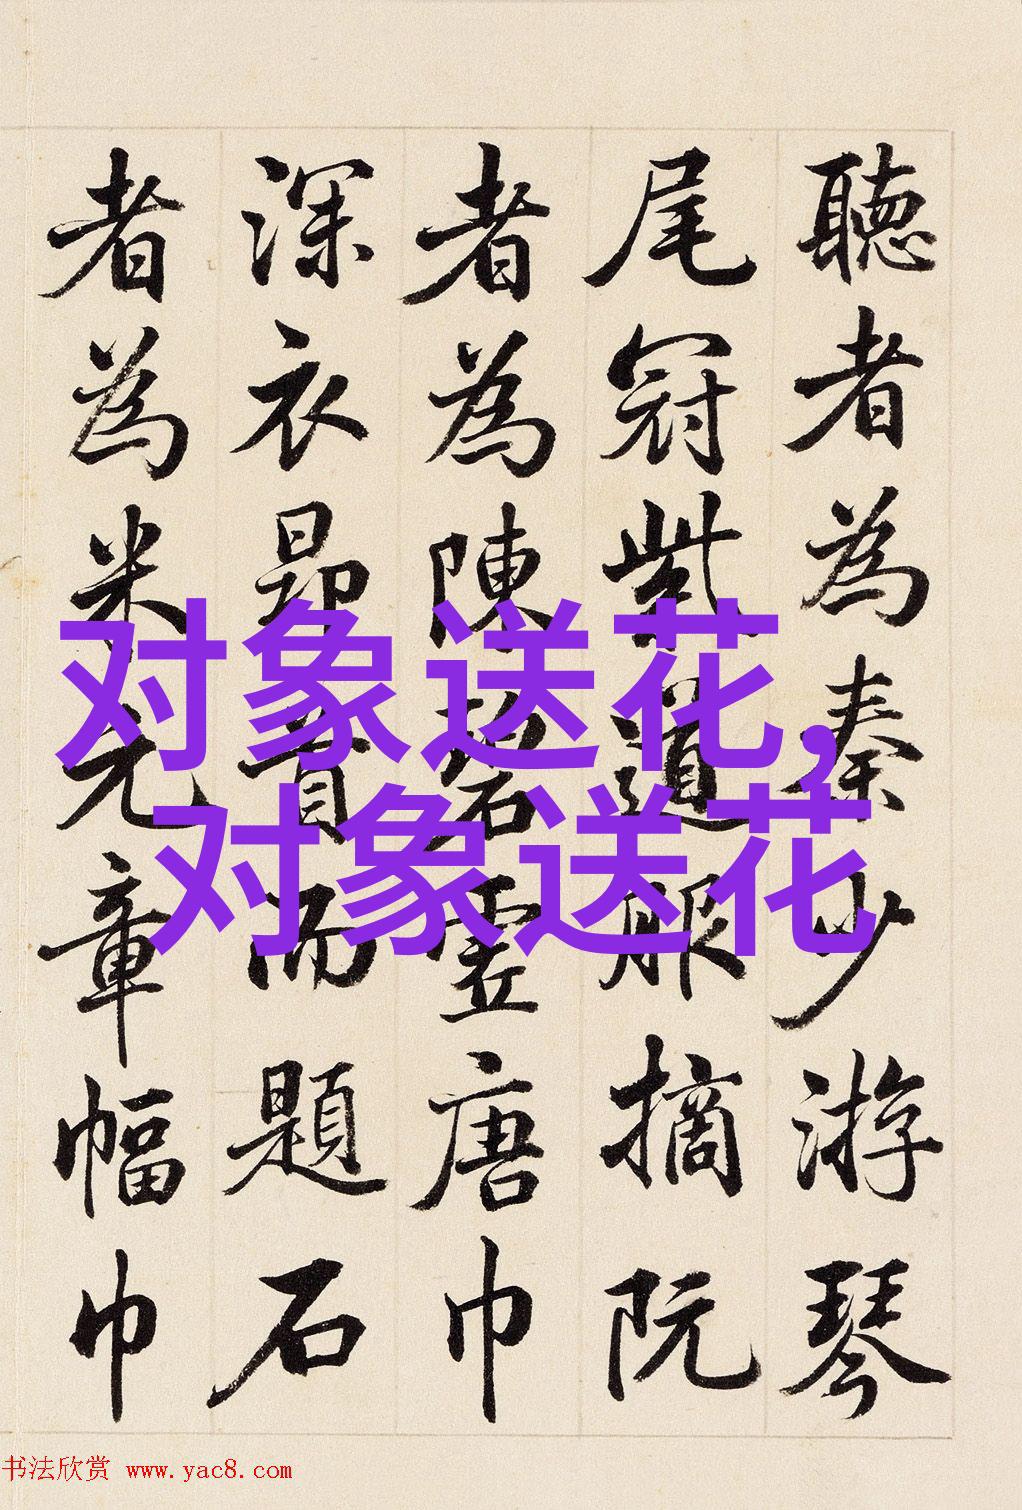 聽者為秦少游琴
尾冠紫道服摘阮
者為陳碧虛唐巾
深衣昂首而題石
者為米元章幅巾
对象送花，
对象送花
书法欣赏 www.yac8.com